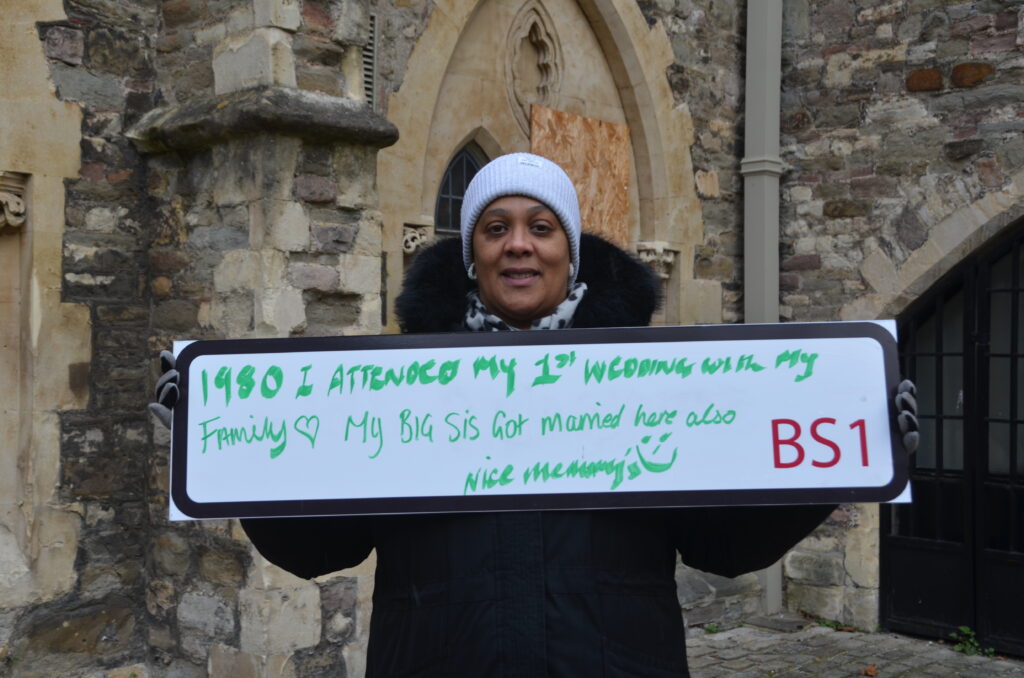 1980 I ATTENDED MY 1ST WEDDING with MY
FAMILY ♡ MY BIG SIS GOT married here also
NICE MEMMORY'S
BS1